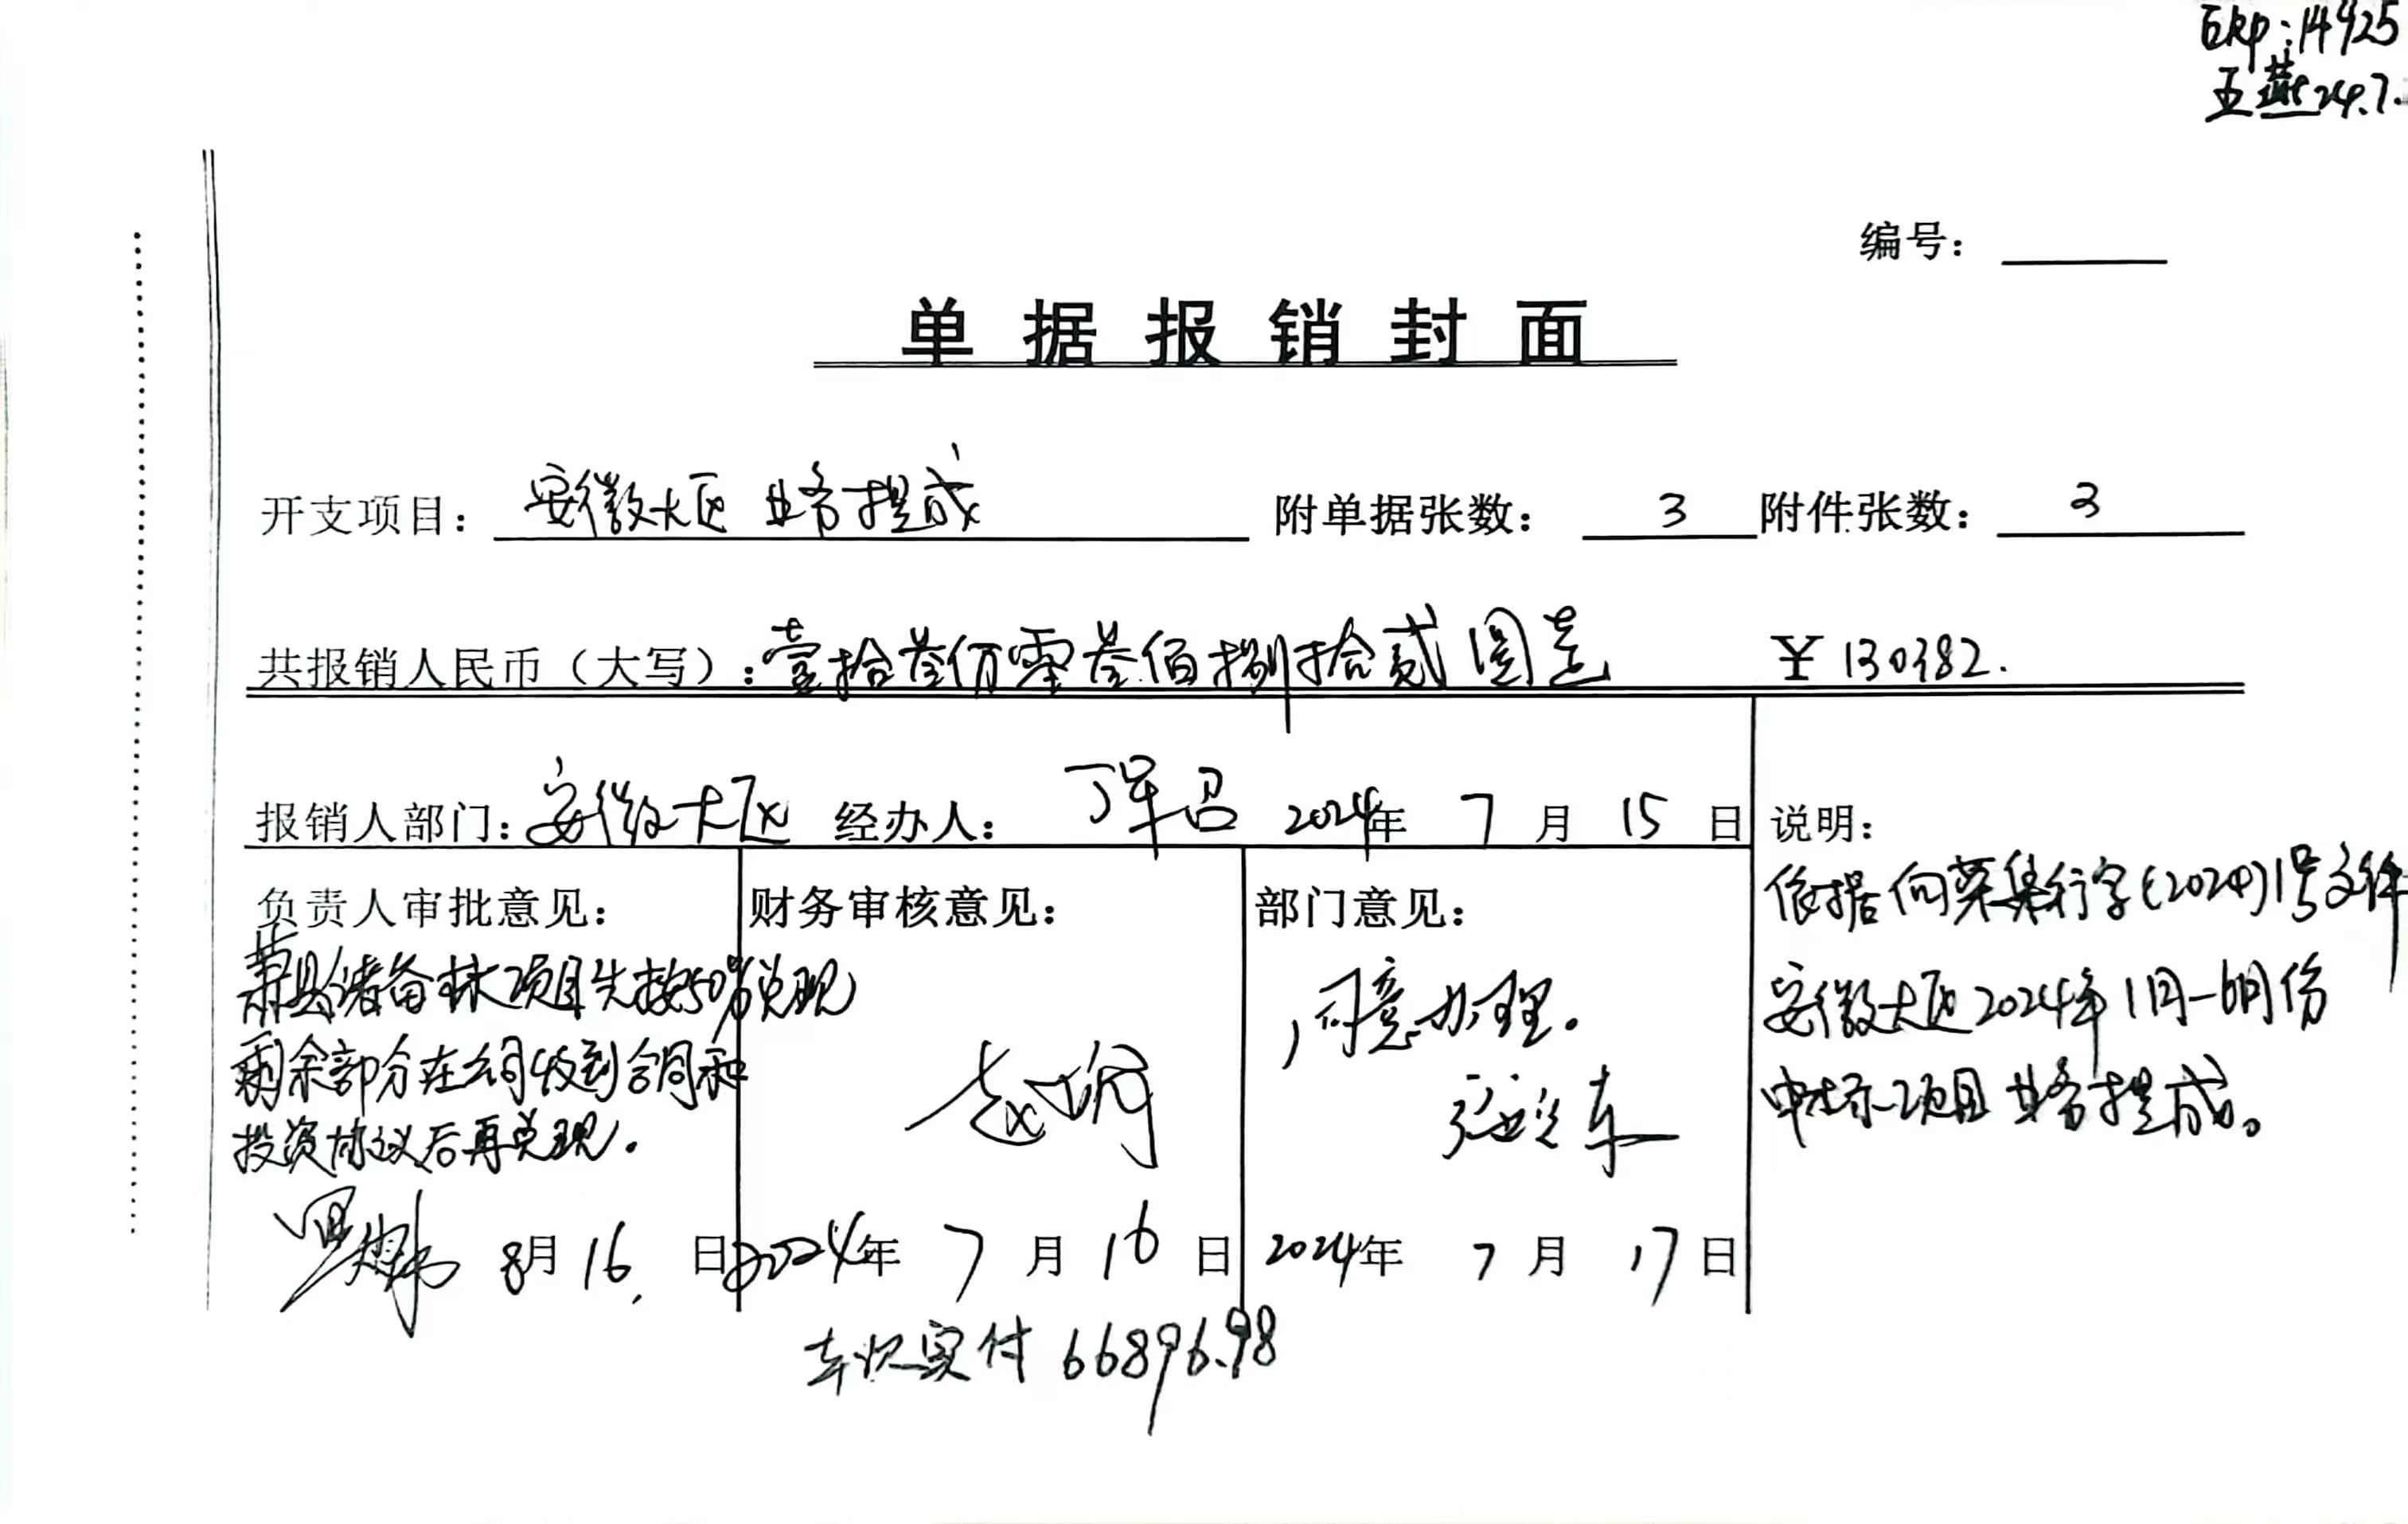 ERP:14925
王燕24.7.
编号：
单据报销封面
开支项目：安徽大区 业务提成 附单据张数：3 附件张数：3
共报销人民币（大写）：壹拾叁仟零叁佰捌拾贰圆 ¥130382.
报销人部门：安徽大区 经办人：丁军召 2024年7月15日
说明：
依据向荣集行字(2024)1号文件
安徽大区2024年1月-6月份
中标项目业务提成。
负责人审批意见：
萧县储备林项目先按50%兑现
剩余部分在公司收到合同和
投资协议后再兑现.
8月16日
财务审核意见：
2024年7月16日
部门意见：
同意办理.
2024年7月17日
本次实付 66896.98